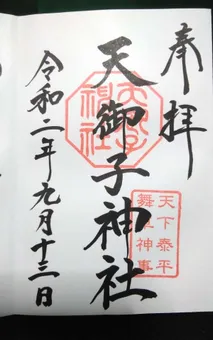 奉拝
天御子神社
天下泰平
舞車神事
令和二年九月十三日